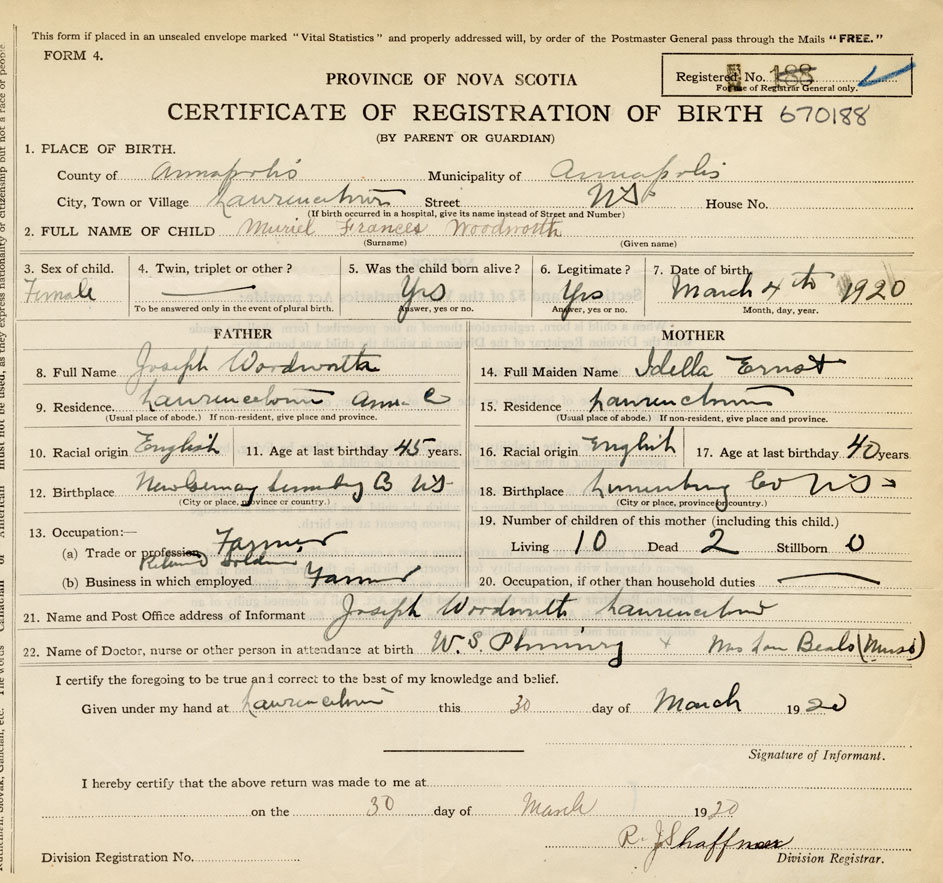 This form if placed in an unsealed envelope marked "Vital Statistics" and properly addressed will, by order of the Postmaster General pass through the Mails "FREE."
FORM 4.
Registered No. 188
For use of Registrar General only.
PROVINCE OF NOVA SCOTIA
CERTIFICATE OF REGISTRATION OF BIRTH 670188
(BY PARENT OR GUARDIAN)
1. PLACE OF BIRTH.
County of Annapolis Municipality of Annapolis
City, Town or Village Lawrencetown Street NS House No.
(If birth occurred in a hospital, give its name instead of Street and Number)
2. FULL NAME OF CHILD Muriel Frances Woodworth
(Surname) (Given name)
3. Sex of child. 4. Twin, triplet or other? 5. Was the child born alive? 6. Legitimate? 7. Date of birth
Female Yes Yes March 4th 1920
To be answered only in the event of plural birth. Answer, yes or no. Answer, yes or no. Month, day, year.
FATHER MOTHER
8. Full Name Joseph Woodworth 14. Full Maiden Name Idella Ernst
9. Residence. Lawrencetown Anna C 15. Residence Lawrencetown
(Usual place of abode.) If non-resident, give place and province. (Usual place of abode.) If non-resident, give place and province.
10. Racial origin English 11. Age at last birthday 45 years. 16. Racial origin English 17. Age at last birthday 40 years
12. Birthplace New Germany Lunenburg Co NS 18. Birthplace Lunenburg Co NS
(City or place, province or country.) (City or place, province or country.)
13. Occupation:— 19. Number of children of this mother (including this child.)
(a) Trade or profession Farmer Living 10 Dead 2 Stillborn 0
Returned Soldier
(b) Business in which employed Farmer 20. Occupation, if other than household duties
21. Name and Post Office address of Informant Joseph Woodworth Lawrencetown
22. Name of Doctor, nurse or other person in attendance at birth W. S. + Mrs Beals (Nurse)
I certify the foregoing to be true and correct to the best of my knowledge and belief.
Given under my hand at Lawrencetown this 30 day of March 1920
Signature of Informant.
I hereby certify that the above return was made to me at
on the 30 day of March 1920
R. J. Shaffner
Division Registration No. Division Registrar.